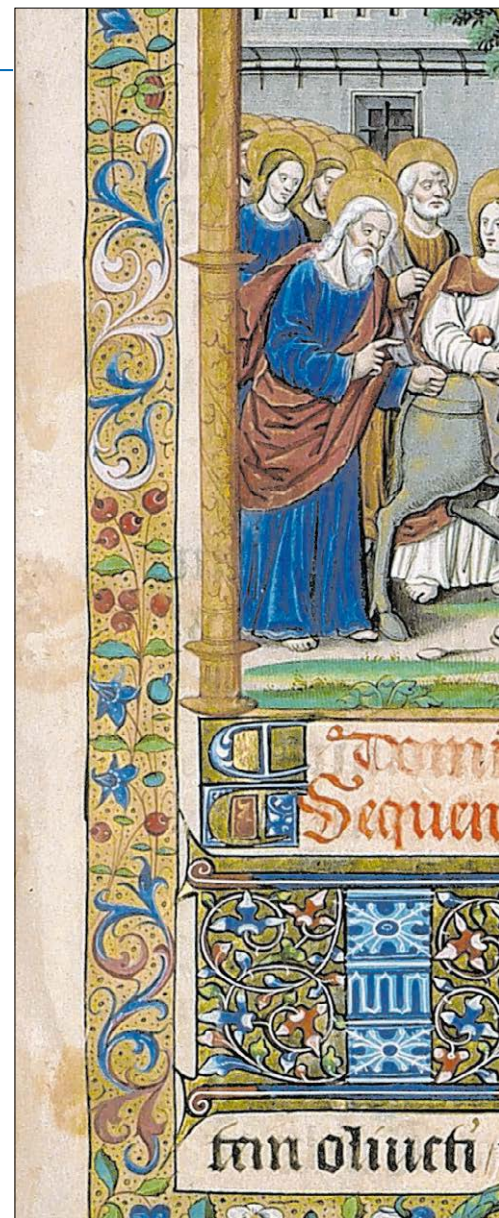 Domi
Sequen
tem oliueti